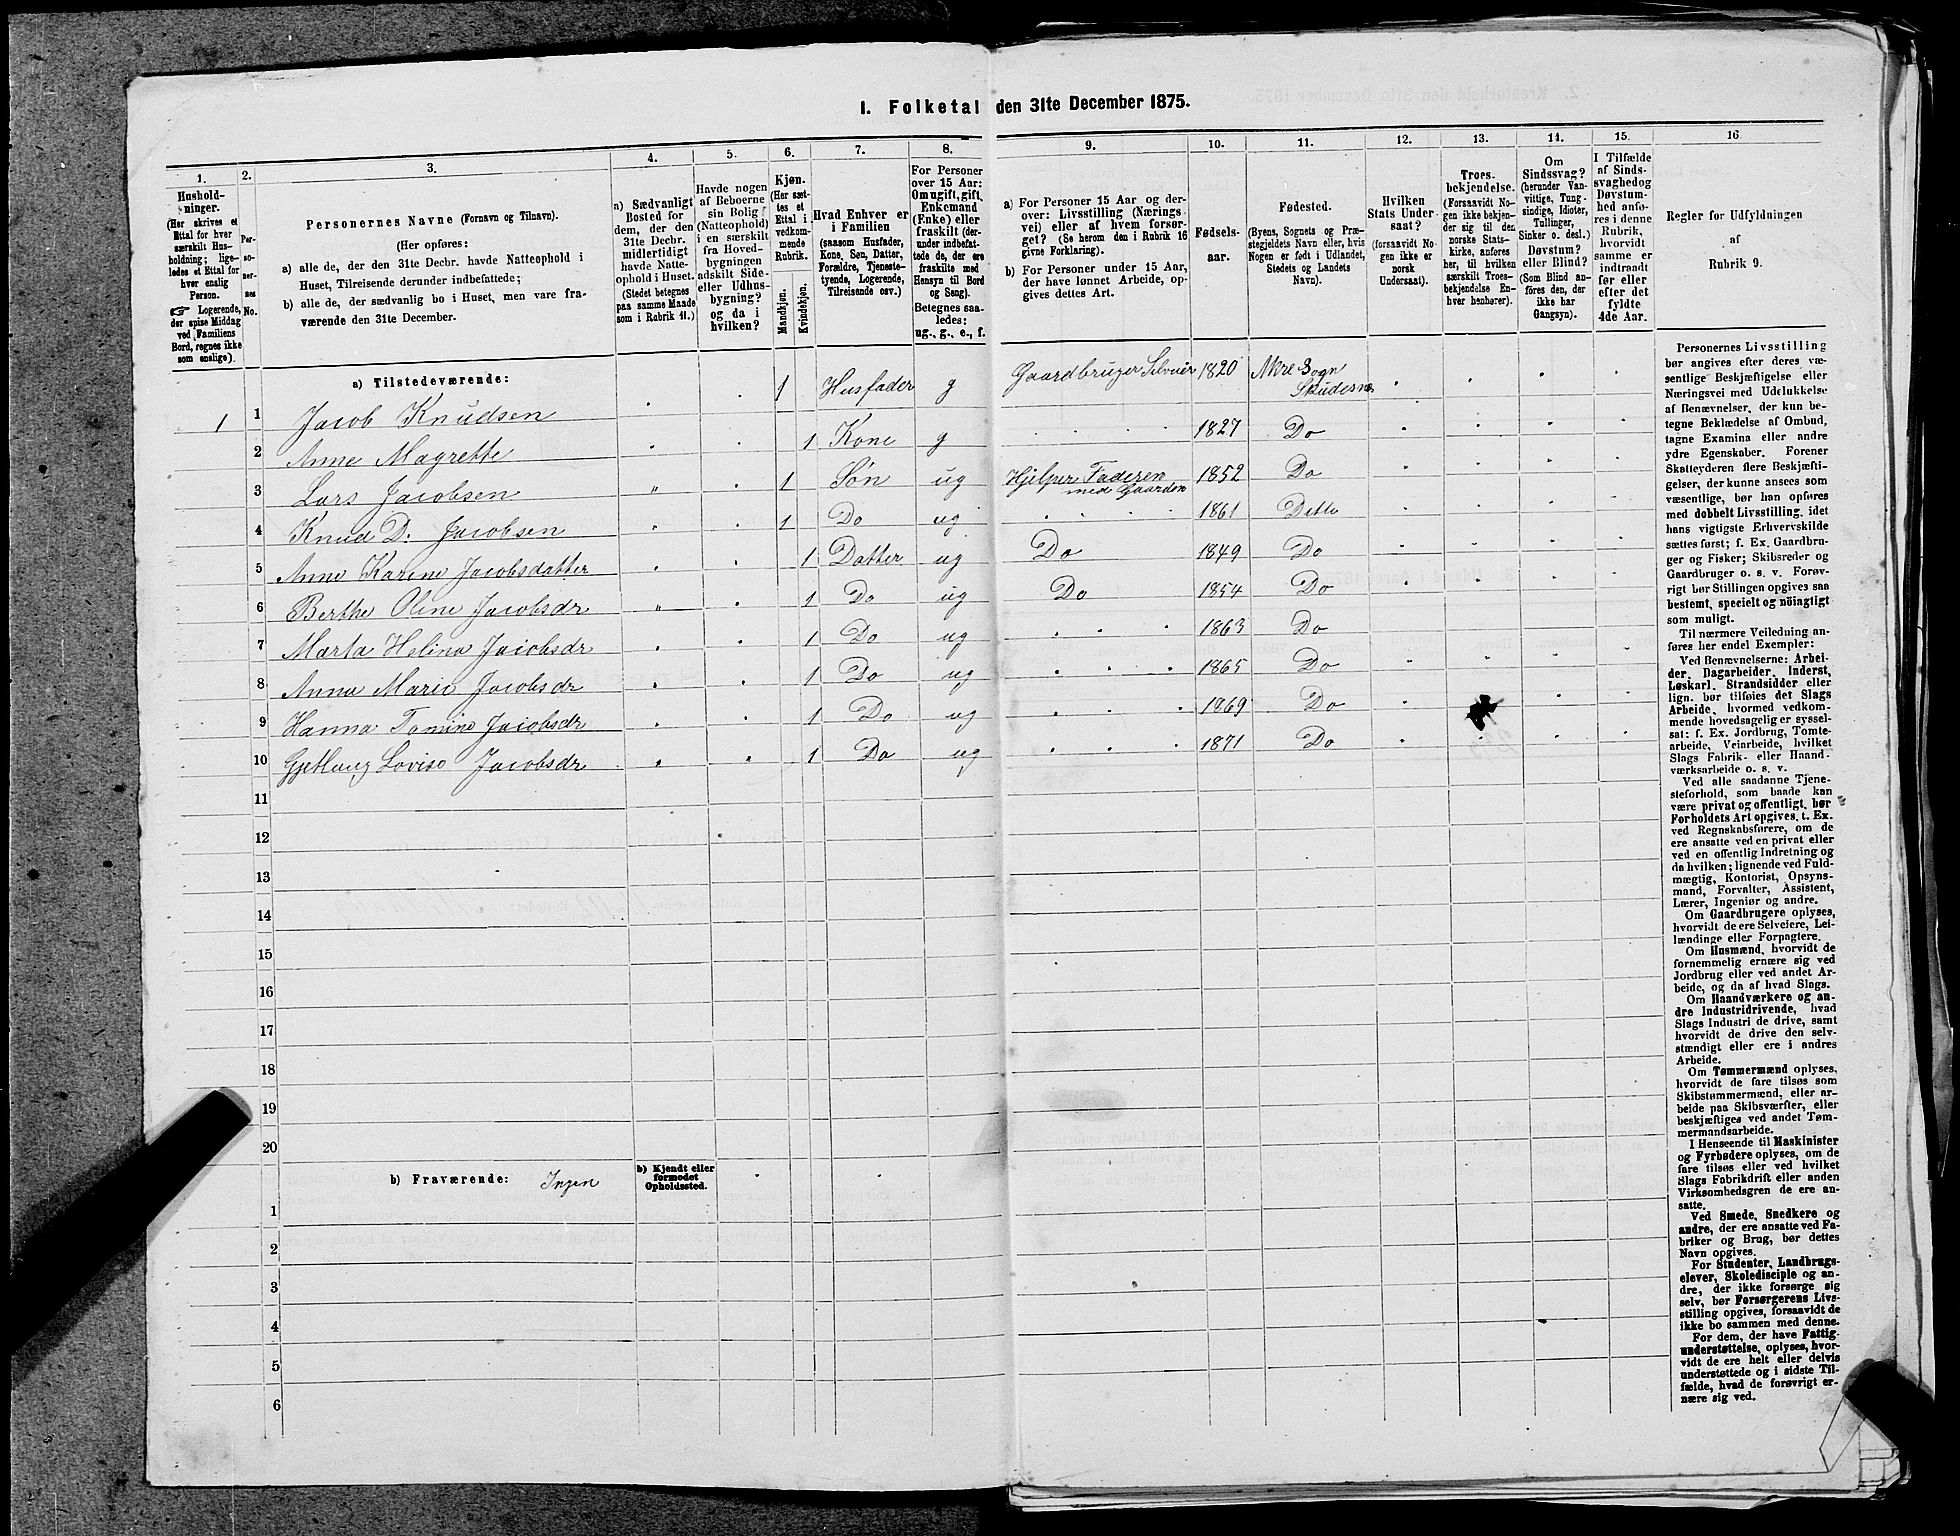 1. Folketal den 31te December 1875.
1. 2. 3. 4. 5. 6. 7. 8. 9. 10. 11. 12. 13. 14. 15. 16
Hushold-
ninger.
(Her skrives et
Ettal for hver
særskilt Hus-
holdning; lige-
ledes et Ettal for
hver enslig
Person.
☞ Logerende,
der spise Middag
ved Familiens
Bord, regnes ikke
som enslige).
Per-
so-
ner-
nes
No.
Personernes Navne (Fornavn og Tilnavn).
(Her opføres:
a) alle de, der den 31te Decbr. havde Natteophold i
Huset, Tilreisende derunder indbefattede;
b) alle de, der sædvanlig bo i Huset, men vare fra-
værende den 31te December.
a) Sædvanligt
Bosted for
dem, der den
31te Decbr.
midlertidigt
havde Natte-
ophold i Huset.
(Stedet betegnes
paa samme Maade
som i Rubrik 11.)
Havde nogen
af Beboerne
sin Bolig
(Natteophold)
i en særskilt
fra Hoved-
bygningen
adskilt Side-
eller Udhus-
bygning?
og da i
hvilken?
Kjøn.
(Her sæt-
tes et
Ettal i
vedkom-
mende
Rubrik.
Mandkjøn.
Kvindekjøn.
Hvad Enhver er
i Familien
(saasom Husfader,
Kone, Søn, Datter,
Forældre, Tjeneste-
tyende, Logerende,
Tilreisende osv.)
For Personer
over 15 Aar:
Om ugift, gift,
Enkemand
(Enke) eller
fraskilt (der-
under indbefat-
tede de, der ere
fraskilte med
Hensyn til Bord
og Seng).
Betegnes saa-
ledes:
ug., g., e., f.
a) For Personer 15 Aar og der-
over: Livsstilling (Nærings-
vei) eller af hvem forsør-
get? (Se herom den i Rubrik 16
givne Forklaring).
b) For Personer under 15 Aar,
der have lønnet Arbeide, op-
gives dettes Art.
Fødsels-
aar.
Fødested.
(Byens, Sognets og Præ-
stegjeldets Navn eller, hvis
Nogen er født i Udlandet,
Stedets og Landets
Navn).
Hvilken
Stats Under-
saat?
(forsaavidt No-
gen ikke er
norsk
Undersaat).
Troes-
bekjendelse.
(Forsaavidt No-
gen ikke bekjen-
der sig til den
norske Stats-
kirke, anføres
her, til hvilken
særskilt Troes-
bekjendelse En-
hver henhører).
Om
Sindssvag?
(herunder Van-
vittige, Tung-
sindige, Idioter,
Tullinger,
Sinker o. desl.)
Døvstum?
eller Blind?
(Som Blind an-
føres den, der
ikke har
Gangsyn).
I Tilfælde
af Sinds-
svaghed og
Døvstum-
hed anfø-
res i denne
Rubrik,
hvorvidt
samme er
indtraadt
før eller
efter det
fyldte
4de Aar.
Regler for Udfyldningen
af
Rubrik 9.
a) Tilstedeværende:
1 1 Jacob Knudsen 1 Husfader g Gaardbruger Selveier 1820 Akre Sogn
Skudesnes
2 Anne Magrette 1 Kone g 1827 Do
3 Lars Jacobsen " 1 Søn ug Hjelper Faderen
med Gaarden 1852 Do
4 Knud D. Jacobsen 1 Do ug 1861 Ditto
5 Anne Karine Jacobsdatter 1 Datter ug Do 1849 Do
6 Berthe Oline Jacobsdr " 1 Do ug Do 1854 Do
7 Marta Helina Jacobsdr 1 Do ug 1863 Do
8 Anna Marie Jacobsdr 1 Do ug 1865 Do
9 Hanna Tomine Jacobsdr 1 Do ug 1869 Do
10 Lovise Jacobsdr 1 Do ug 1871 Do
11
12
13
14
15
16
17
18
19
20
b) Fraværende: Ingen
b) Kjendt eller
formodet
Opholdssted.
1
2
3
4
5
6
Personernes Livsstilling
bør angives efter deres væ-
sentlige Beskjæftigelse eller
Næringsvei med Udelukkelse
af Benævnelser, der kun be-
tegne Beklædelse af Ombud,
tagne Examina eller andre
ydre Egenskaber. Forener
Skatteyderen flere Beskjæfti-
gelser, der kunne ansees som
væsentlige, bør han opføres
med dobbelt Livsstilling, idet
hans vigtigste Erhvervskilde
sættes først; f. Ex. Gaardbru-
ger og Fisker; Skibsreder og
Gaardbruger o. s. v. Forøv-
rigt bør Stillingen opgives saa
bestemt, specielt og nöiagtigt
som muligt.
Til nærmere Veiledning an-
føres her endel Exempler:
Ved Benævnelserne: Arbei-
der, Dagarbeider, Inderst,
Løskarl, Strandsidder eller
lign. bør tilføies det Slags
Arbeide, hvormed vedkom-
mende hovedsagelig er syssel-
sat: f. Ex. Jordbrug, Tomte-
arbeide, Veiarbeide, hvilket
Slags Fabrik- eller Haand-
værksarbeide o. s. v.
Ved alle saadanne Tjene-
steforhold, som baade kan
være privat og offentligt, bør
Forholdets Art opgives, t. Ex.
ved Regnskabsførere, om de
ere ansatte ved en privat eller
ved en offentlig Indretning og
da hvilken; lignende ved Fuld-
mægtig, Kontorist, Opsyns-
mand, Forvalter, Assistent,
Lærer, Ingeniør og andre.
Om Gaardbrugere oplyses,
hvorvidt de ere Selveiere, Lei-
lændinge eller Forpagtere.
Om Husmænd, hvorvidt de
fornemmelig ernære sig ved
Jordbrug eller ved andet Ar-
beide, og da af hvad Slags.
Om Haandværkere og an-
dre Industridrivende, hvad
Slags Industri de drive, samt
hvorvidt de drive den selv-
stændigt eller ere i andres
Arbeide.
Om Tømmermænd oplyses,
hvorvidt de fare tilsøs som
Skibstømmermænd, eller ar-
beide paa Skibsværfter, eller
beskjæftiges ved andet Tøm-
mermandsarbeide.
I Henseende til Maskinister
og Fyrbødere oplyses, om de
fare tilsøs eller ved hvilket
Slags Fabrikdrift eller anden
Virksomhedsgren de ere an-
satte.
Ved Smede, Snedkere og
andre, der ere ansatte ved Fa-
briker og Brug, bør dettes
Navn opgives.
For Studenter, Landbrugs-
elever, Skoledisciple og an-
dre, der ikke forsørge sig
selv, bør Forsørgerens Livs-
stilling opgives, forsaavidt de
ikke bo sammen med denne.
For dem, der have Fattig-
understøttelse, oplyses, hvor-
vidt de ere helt eller delvis
understøttede og i sidste Til-
fælde, hvad de forøvrigt er-
nære sig ved.